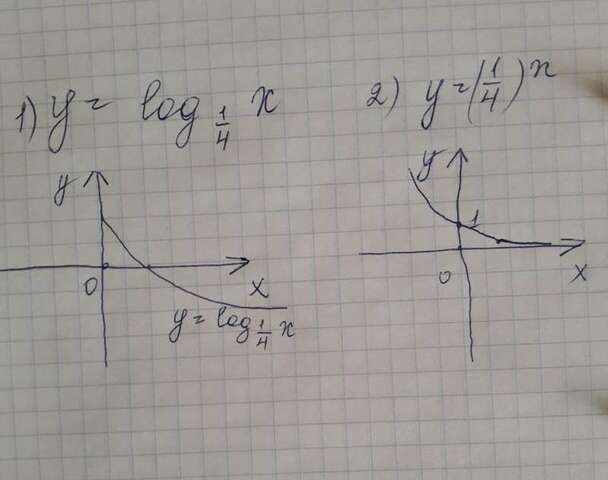 1) y = log 1/4 x
2) y = (1/4)^x
y
0
x
y = log 1/4 x
y
1
0
x